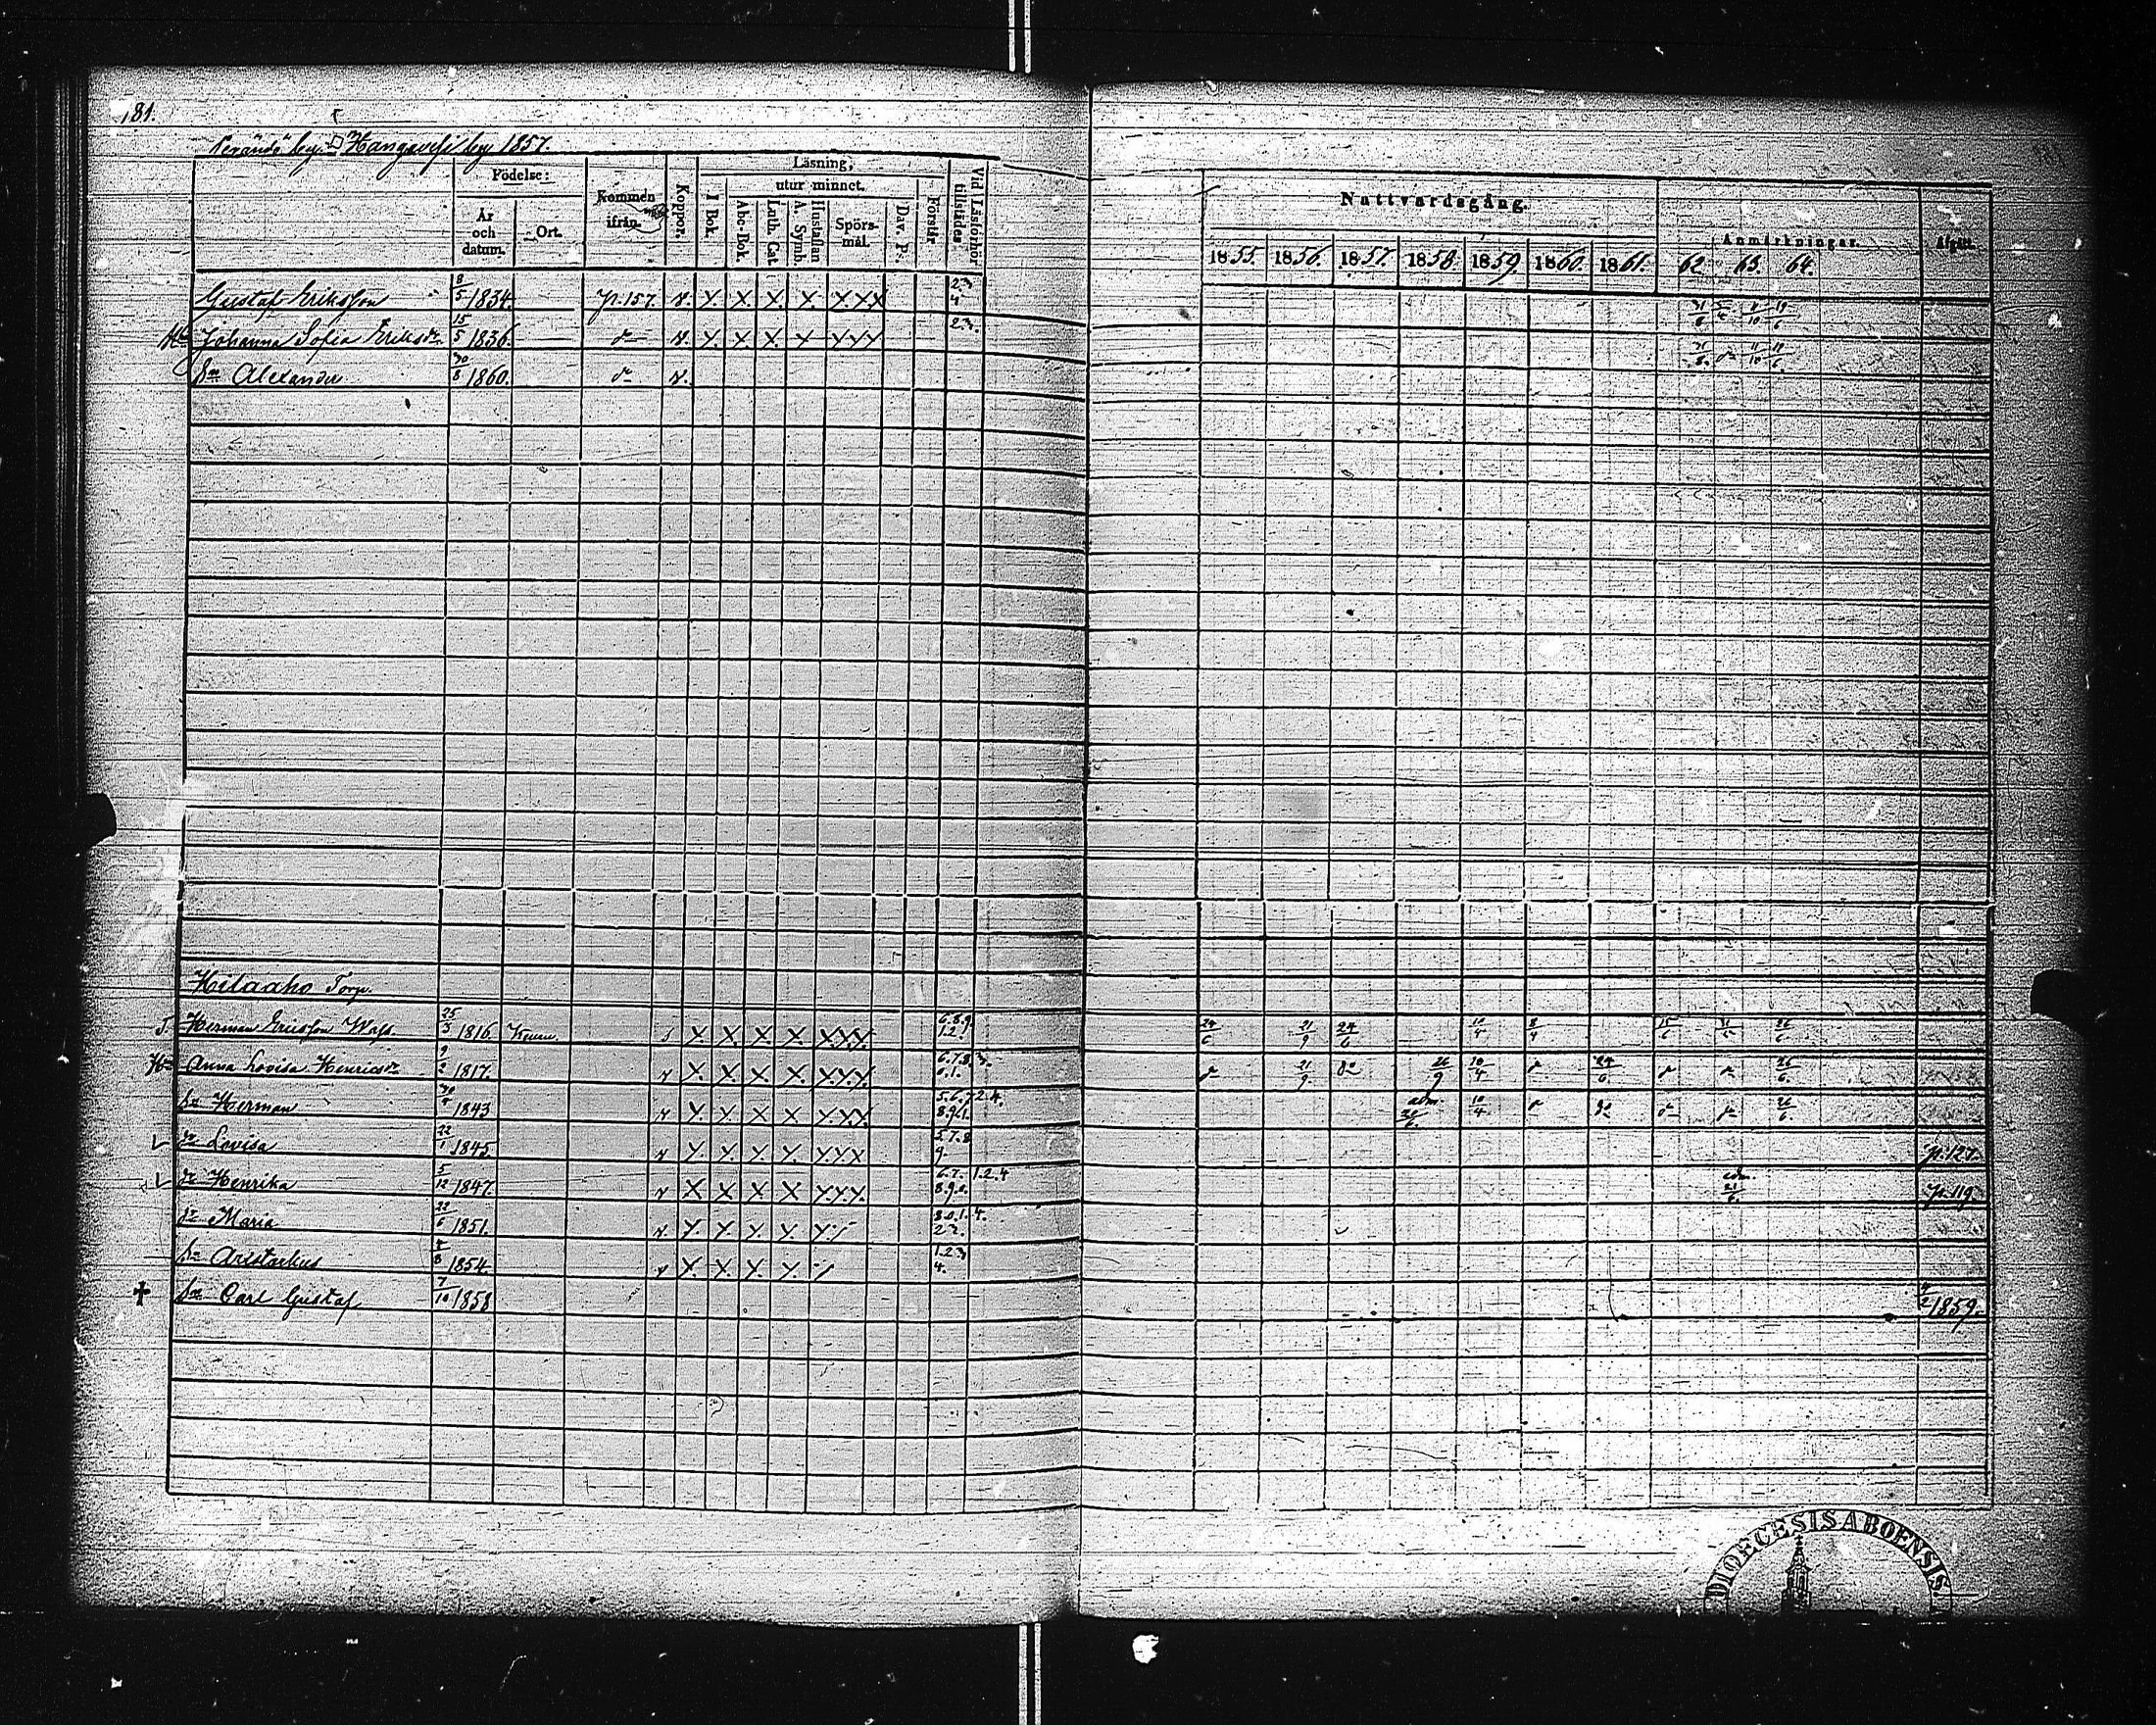 181.
by. Hangavesi by 1857.
Födelse: Kommen ifrån. Koppor. Läsning, Vid Läsförhör tillstädes
År och datum. Ort. I Bok. utur minnet. Förstår
Abc-Bok Luth. Cat. A. Symb. Hustaflan Spörs-mål. Dav. P.
Nattvardsgång. Anmärkningar. Afgått.
1855. 1856. 1857. 1858. 1859. 1860. 1861. 62. 63. 64.
Gustaf Eriksson 8/5 1834. p. 157. v. X. X. X. X. XXX 2.3 4
Hu Johanna Sofia Eriksdr. 15/5 1836. v. X. X X. X XXX 2.3.
Sn Alexander 30/8 1860. v.
Hitaaho Torp.
T. Herman Ericsson Wass. 25/3 1816. s X. X. X X. XXX. 6.8.9. 1.2. 24/6 21/9 24/6 10/4 8/4 15/6 21/6 26/6
Hu Anna Lovisa Henricsdr 9/2 1817. v X. X. X X. X.X.X 6.7.8. 3. 0.1. 21/9 26/9 10/4 24/6 26/6.
Sn Herman 1843 v X. X. X X X.X.X. 5.6.7. 2.4. 8.9.1. adm. 10/4 26/6.
dr Lovisa 22/1 1845 v X. X. X. X. XXX 5.7.8 9. p. 127.
dr Henrika 5/12 1847. v X X X X X.X.X. 6.7. 1.2.4 8.9.0. adm. 21/6. p. 119.
dr Maria 22/6 1851. v X. X. X. X. X. 8.0.1. 4. 2.3.
Sn Aristarkus 4/8 1854. v X. X. X. X. 1.2.3 4.
✝ Sn Carl Gustaf 7/10 1858 4/2 1859.
DIOECESIS ABOENSIS.